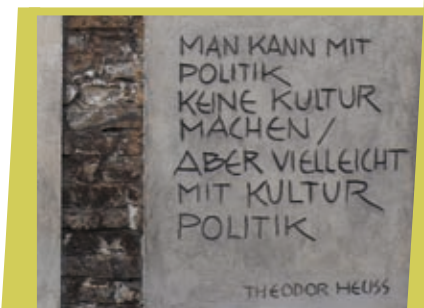 MAN KANN MIT
POLITIK
KEINE KULTUR
MACHEN /
ABER VIELLEICHT
MIT KULTUR
POLITIK
THEODOR HEUSS